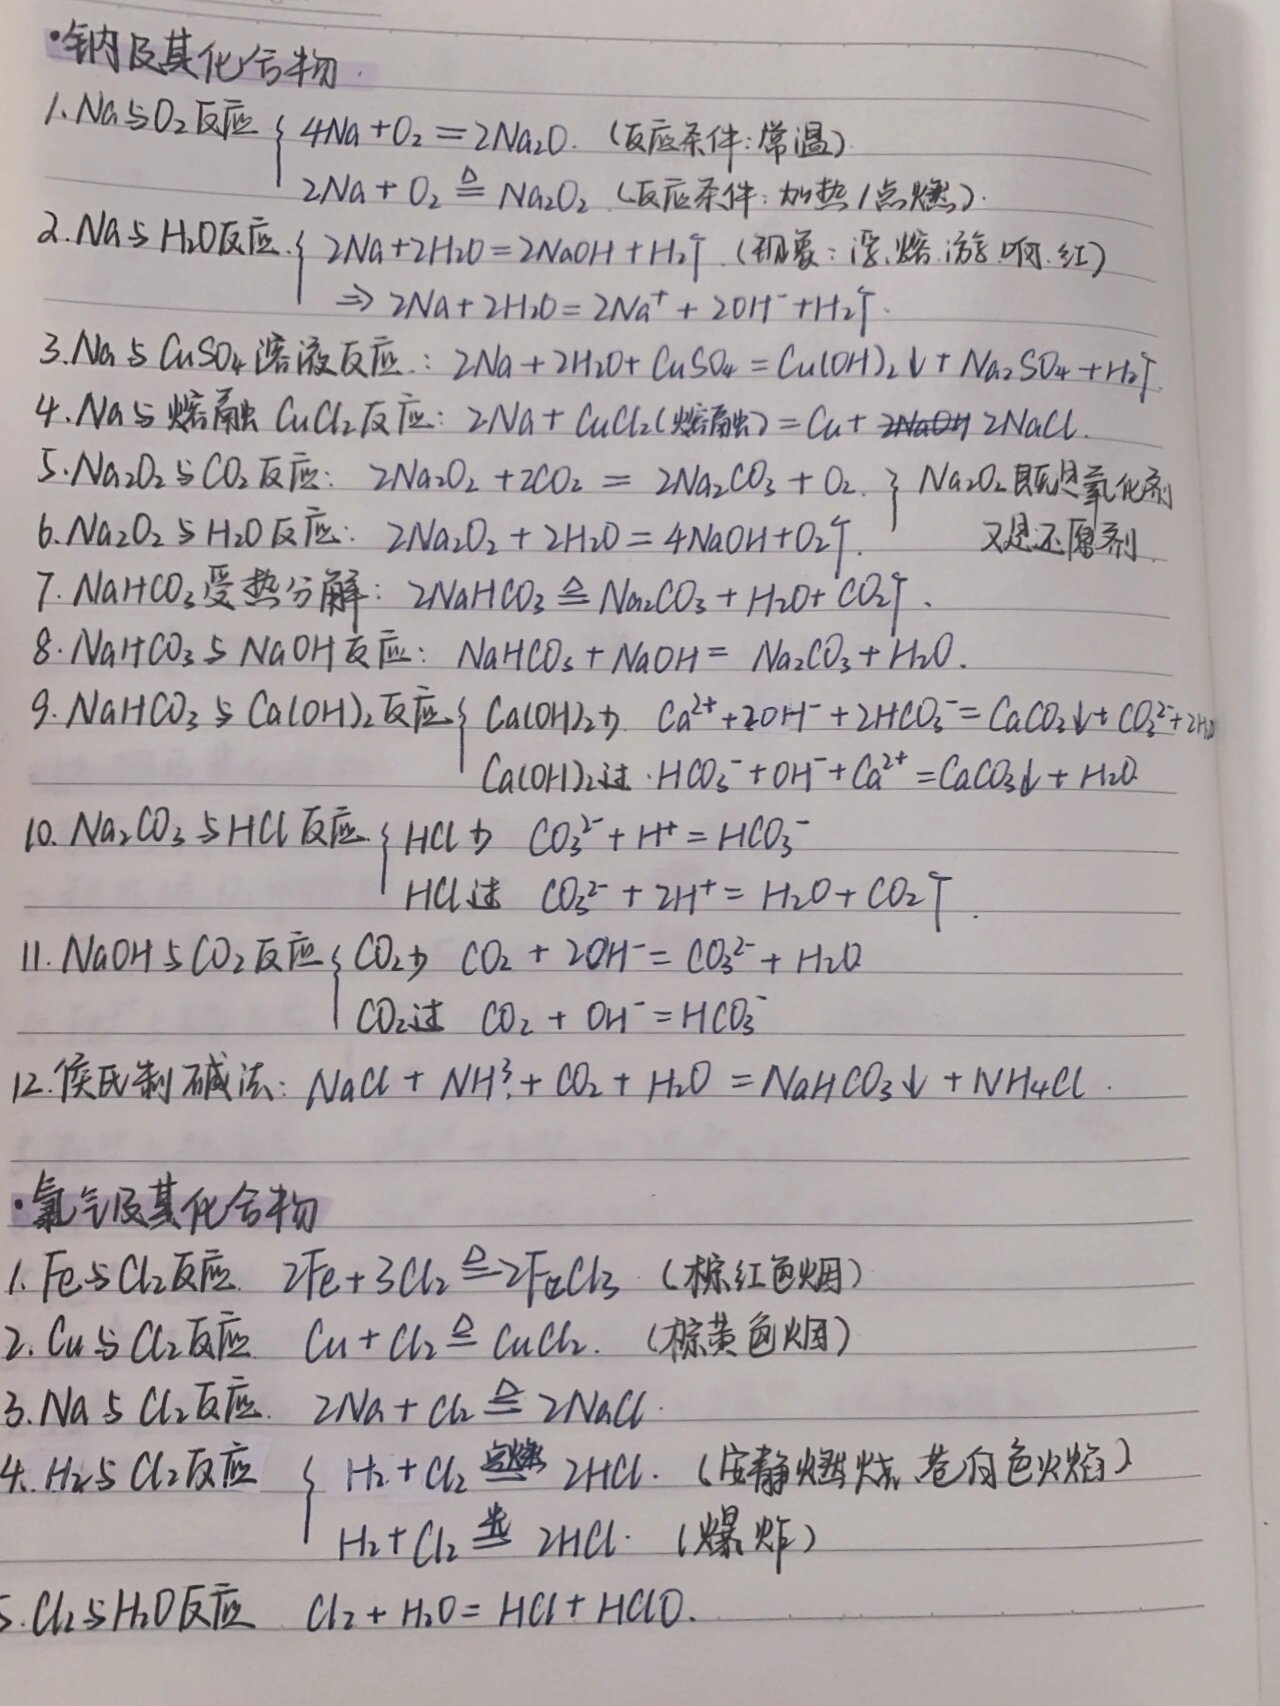 ·钠及其化合物
1. Na与O₂反应 { 4Na+O₂=2Na₂O. (反应条件:常温)
2Na+O₂ ≜ Na₂O₂ (反应条件:加热/点燃).
2. Na与H₂O反应 { 2Na+2H₂O=2NaOH+H₂↑ (现象:浮.熔.游.响.红)
⇒ 2Na+2H₂O=2Na⁺+2OH⁻+H₂↑.
3. Na与CuSO₄溶液反应: 2Na+2H₂O+CuSO₄=Cu(OH)₂↓+Na₂SO₄+H₂↑.
4. Na与熔融CuCl₂反应: 2Na+CuCl₂(熔融)=Cu+2NaOH 2NaCl.
5. Na₂O₂与CO₂反应: 2Na₂O₂+2CO₂=2Na₂CO₃+O₂. } Na₂O₂既是氧化剂
6. Na₂O₂与H₂O反应: 2Na₂O₂+2H₂O=4NaOH+O₂↑. 又是还原剂
7. NaHCO₃受热分解: 2NaHCO₃ ≜ Na₂CO₃+H₂O+CO₂↑.
8. NaHCO₃与NaOH反应: NaHCO₃+NaOH=Na₂CO₃+H₂O.
9. NaHCO₃与Ca(OH)₂反应 { Ca(OH)₂少 Ca²⁺+2OH⁻+2HCO₃⁻=CaCO₃↓+CO₃²⁻+2H₂O
Ca(OH)₂过 HCO₃⁻+OH⁻+Ca²⁺=CaCO₃↓+H₂O
10. Na₂CO₃与HCl反应 { HCl少 CO₃²⁻+H⁺=HCO₃⁻
HCl过 CO₃²⁻+2H⁺=H₂O+CO₂↑.
11. NaOH与CO₂反应 { CO₂少 CO₂+2OH⁻=CO₃²⁻+H₂O
CO₂过 CO₂+OH⁻=HCO₃⁻
12. 侯氏制碱法: NaCl+NH₃+CO₂+H₂O=NaHCO₃↓+NH₄Cl.
·氯气及其化合物
1. Fe与Cl₂反应 2Fe+3Cl₂ ≜ 2FeCl₃ (棕红色烟)
2. Cu与Cl₂反应 Cu+Cl₂ ≜ CuCl₂. (棕黄色烟)
3. Na与Cl₂反应. 2Na+Cl₂ ≜ 2NaCl.
4. H₂与Cl₂反应 { H₂+Cl₂ 点燃= 2HCl. (安静燃烧,苍白色火焰)
H₂+Cl₂ 光= 2HCl. (爆炸)
5. Cl₂与H₂O反应 Cl₂+H₂O=HCl+HClO.